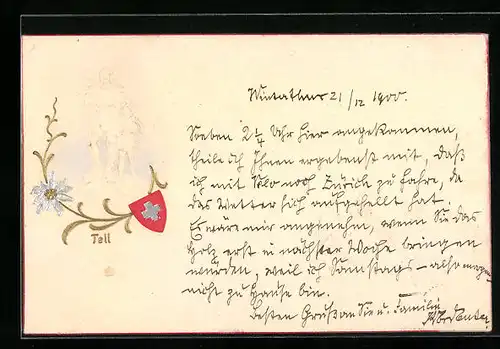 Winterthur 21/12 1900.
Soeben 2 1/4 Uhr hier angekommen,
theile ich Ihnen ergebenst mit, daß
ich mit noch Zürich zu fahre, da
das Wetter sich aufgehellt hat.
Es wäre mir angenehm, wenn Sie das
Holz erst in nächster Woche bringen
würden, weil ich Samstags – also morgen
nicht zu Hause bin.
Besten Gruß an Sie u. Familie
Tell